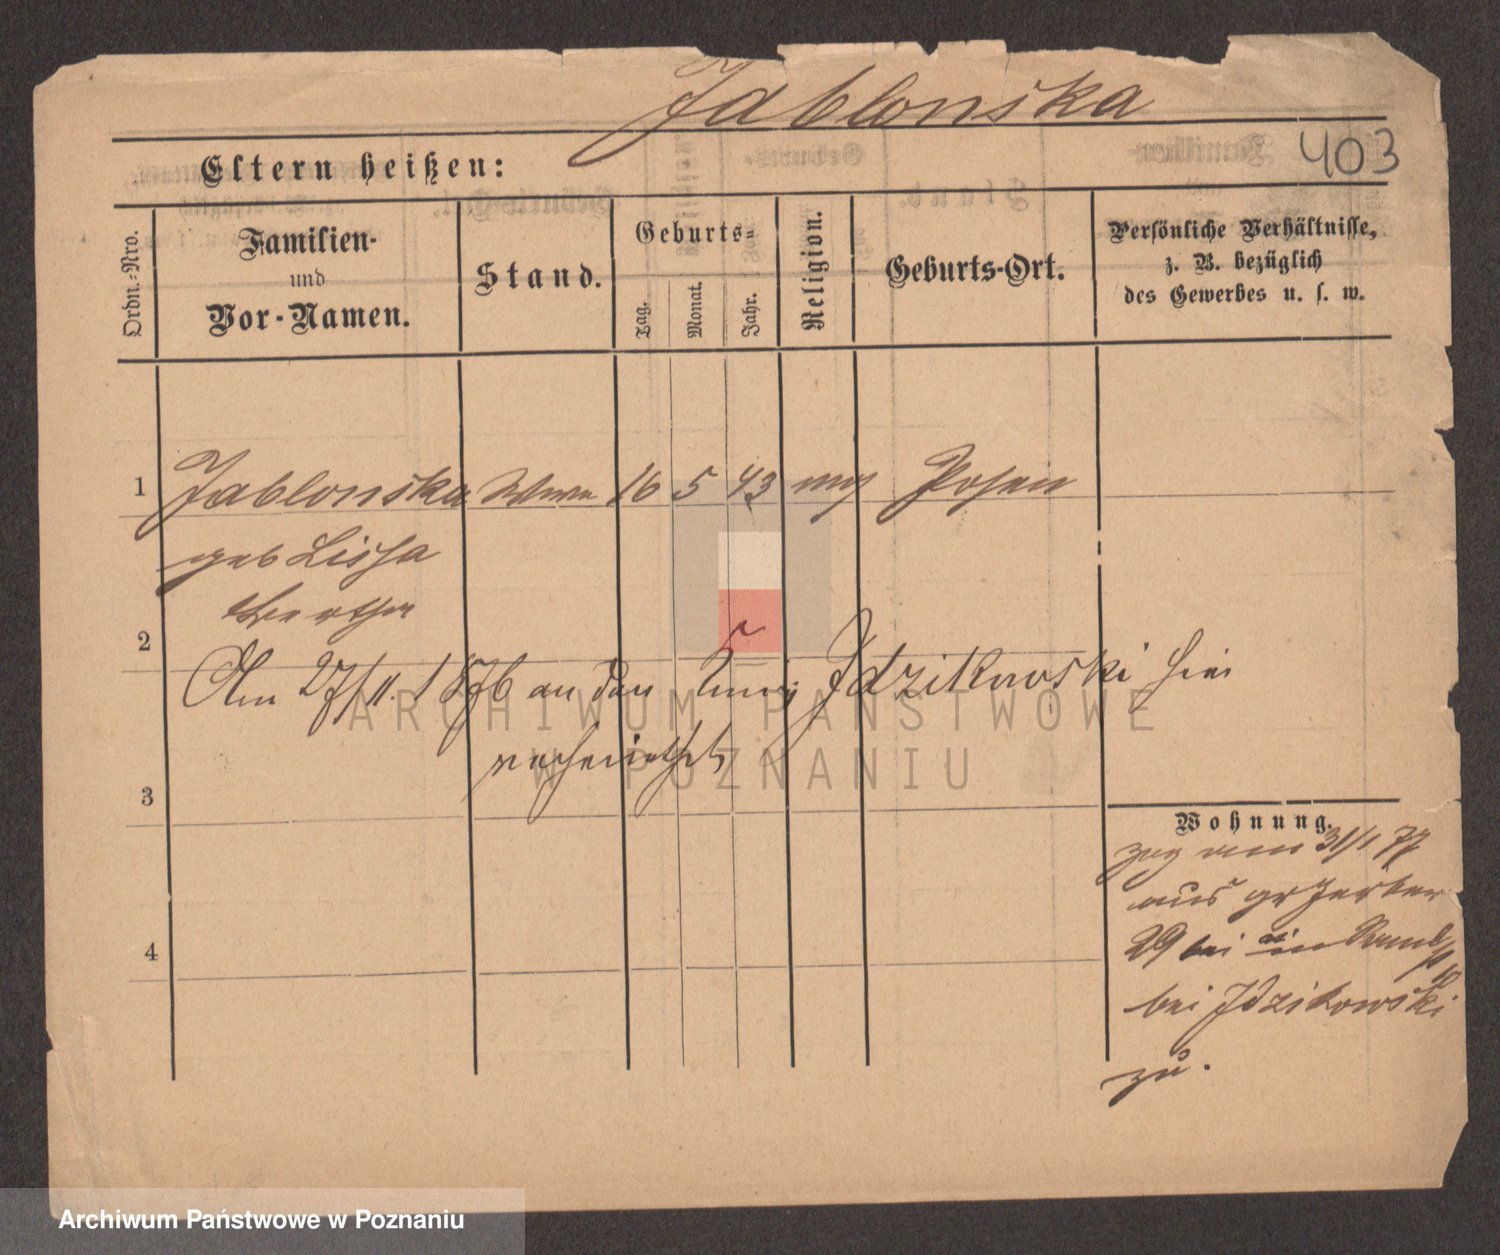 Jablonska
403
Eltern heißen:
Ordn.-Nro.
Familien-
und
Vor-Namen.
Stand.
Geburts-
Tag.
Monat.
Jahr.
Religion.
Geburts-Ort.
Persönliche Verhältnisse,
z. B. bezüglich
des Gewerbes u. s. w.
1 Jablonska 16 5 43 Posen
geb Lissa
Bertha
2
Am 27/11. 1876 an den Idzikowski hier
verheirathet
3
Wohnung.
zog vom 31/1 77
aus gr Gerber
29 bei
bei Idzikowski
zu.
4
ARCHIWUM PAŃSTWOWE
W POZNANIU
Archiwum Państwowe w Poznaniu